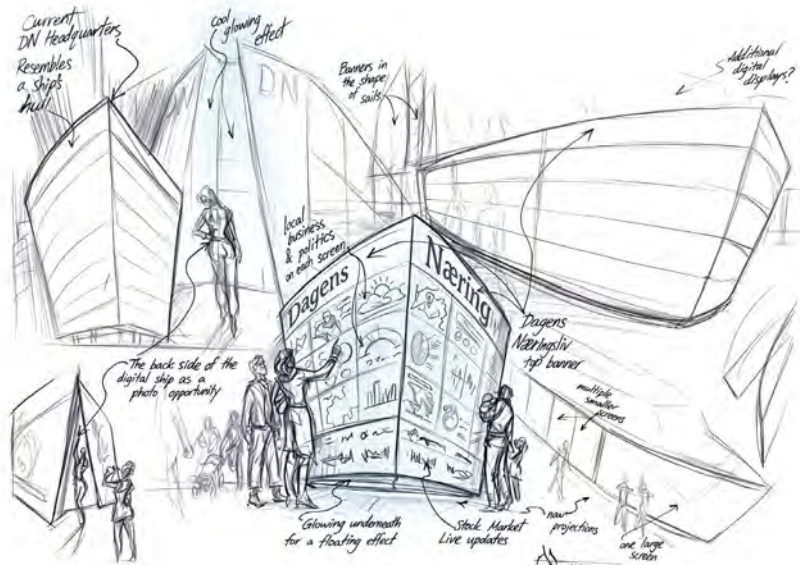 Current
DN Headquarters
Resembles
a ship's
hull
cool
glowing
effect
DN
Banners in
the shape
of sails
Additional
digital
displays?
local
business
& politics
on each screen
Dagens
Næring
Dagens
Næringsliv
top banner
The back side of the
digital ship as a
photo opportunity
multiple
smaller
screens
Glowing underneath
for a floating effect
Stock Market
Live updates
projections
one large
screen